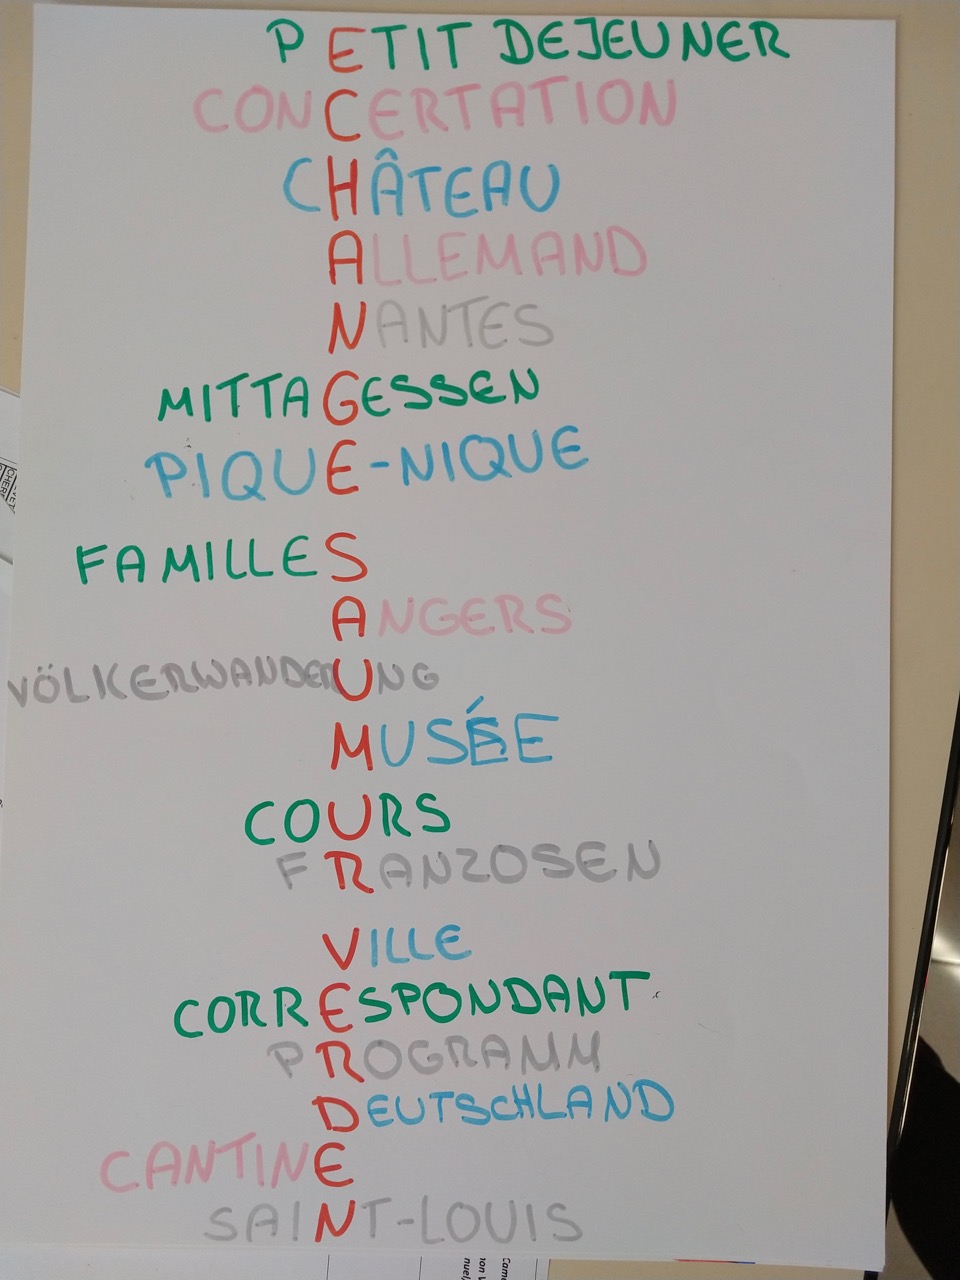 PETIT DEJEUNER
CONCERTATION
CHÂTEAU
ALLEMAND
NANTES
MITTAGESSEN
PIQUE-NIQUE
FAMILLES
ANGERS
VÖLKERWANDERUNG
MUSÉE
COURS
FRANZOSEN
VILLE
CORRESPONDANT
PROGRAMM
DEUTSCHLAND
CANTINE
SAINT-LOUIS